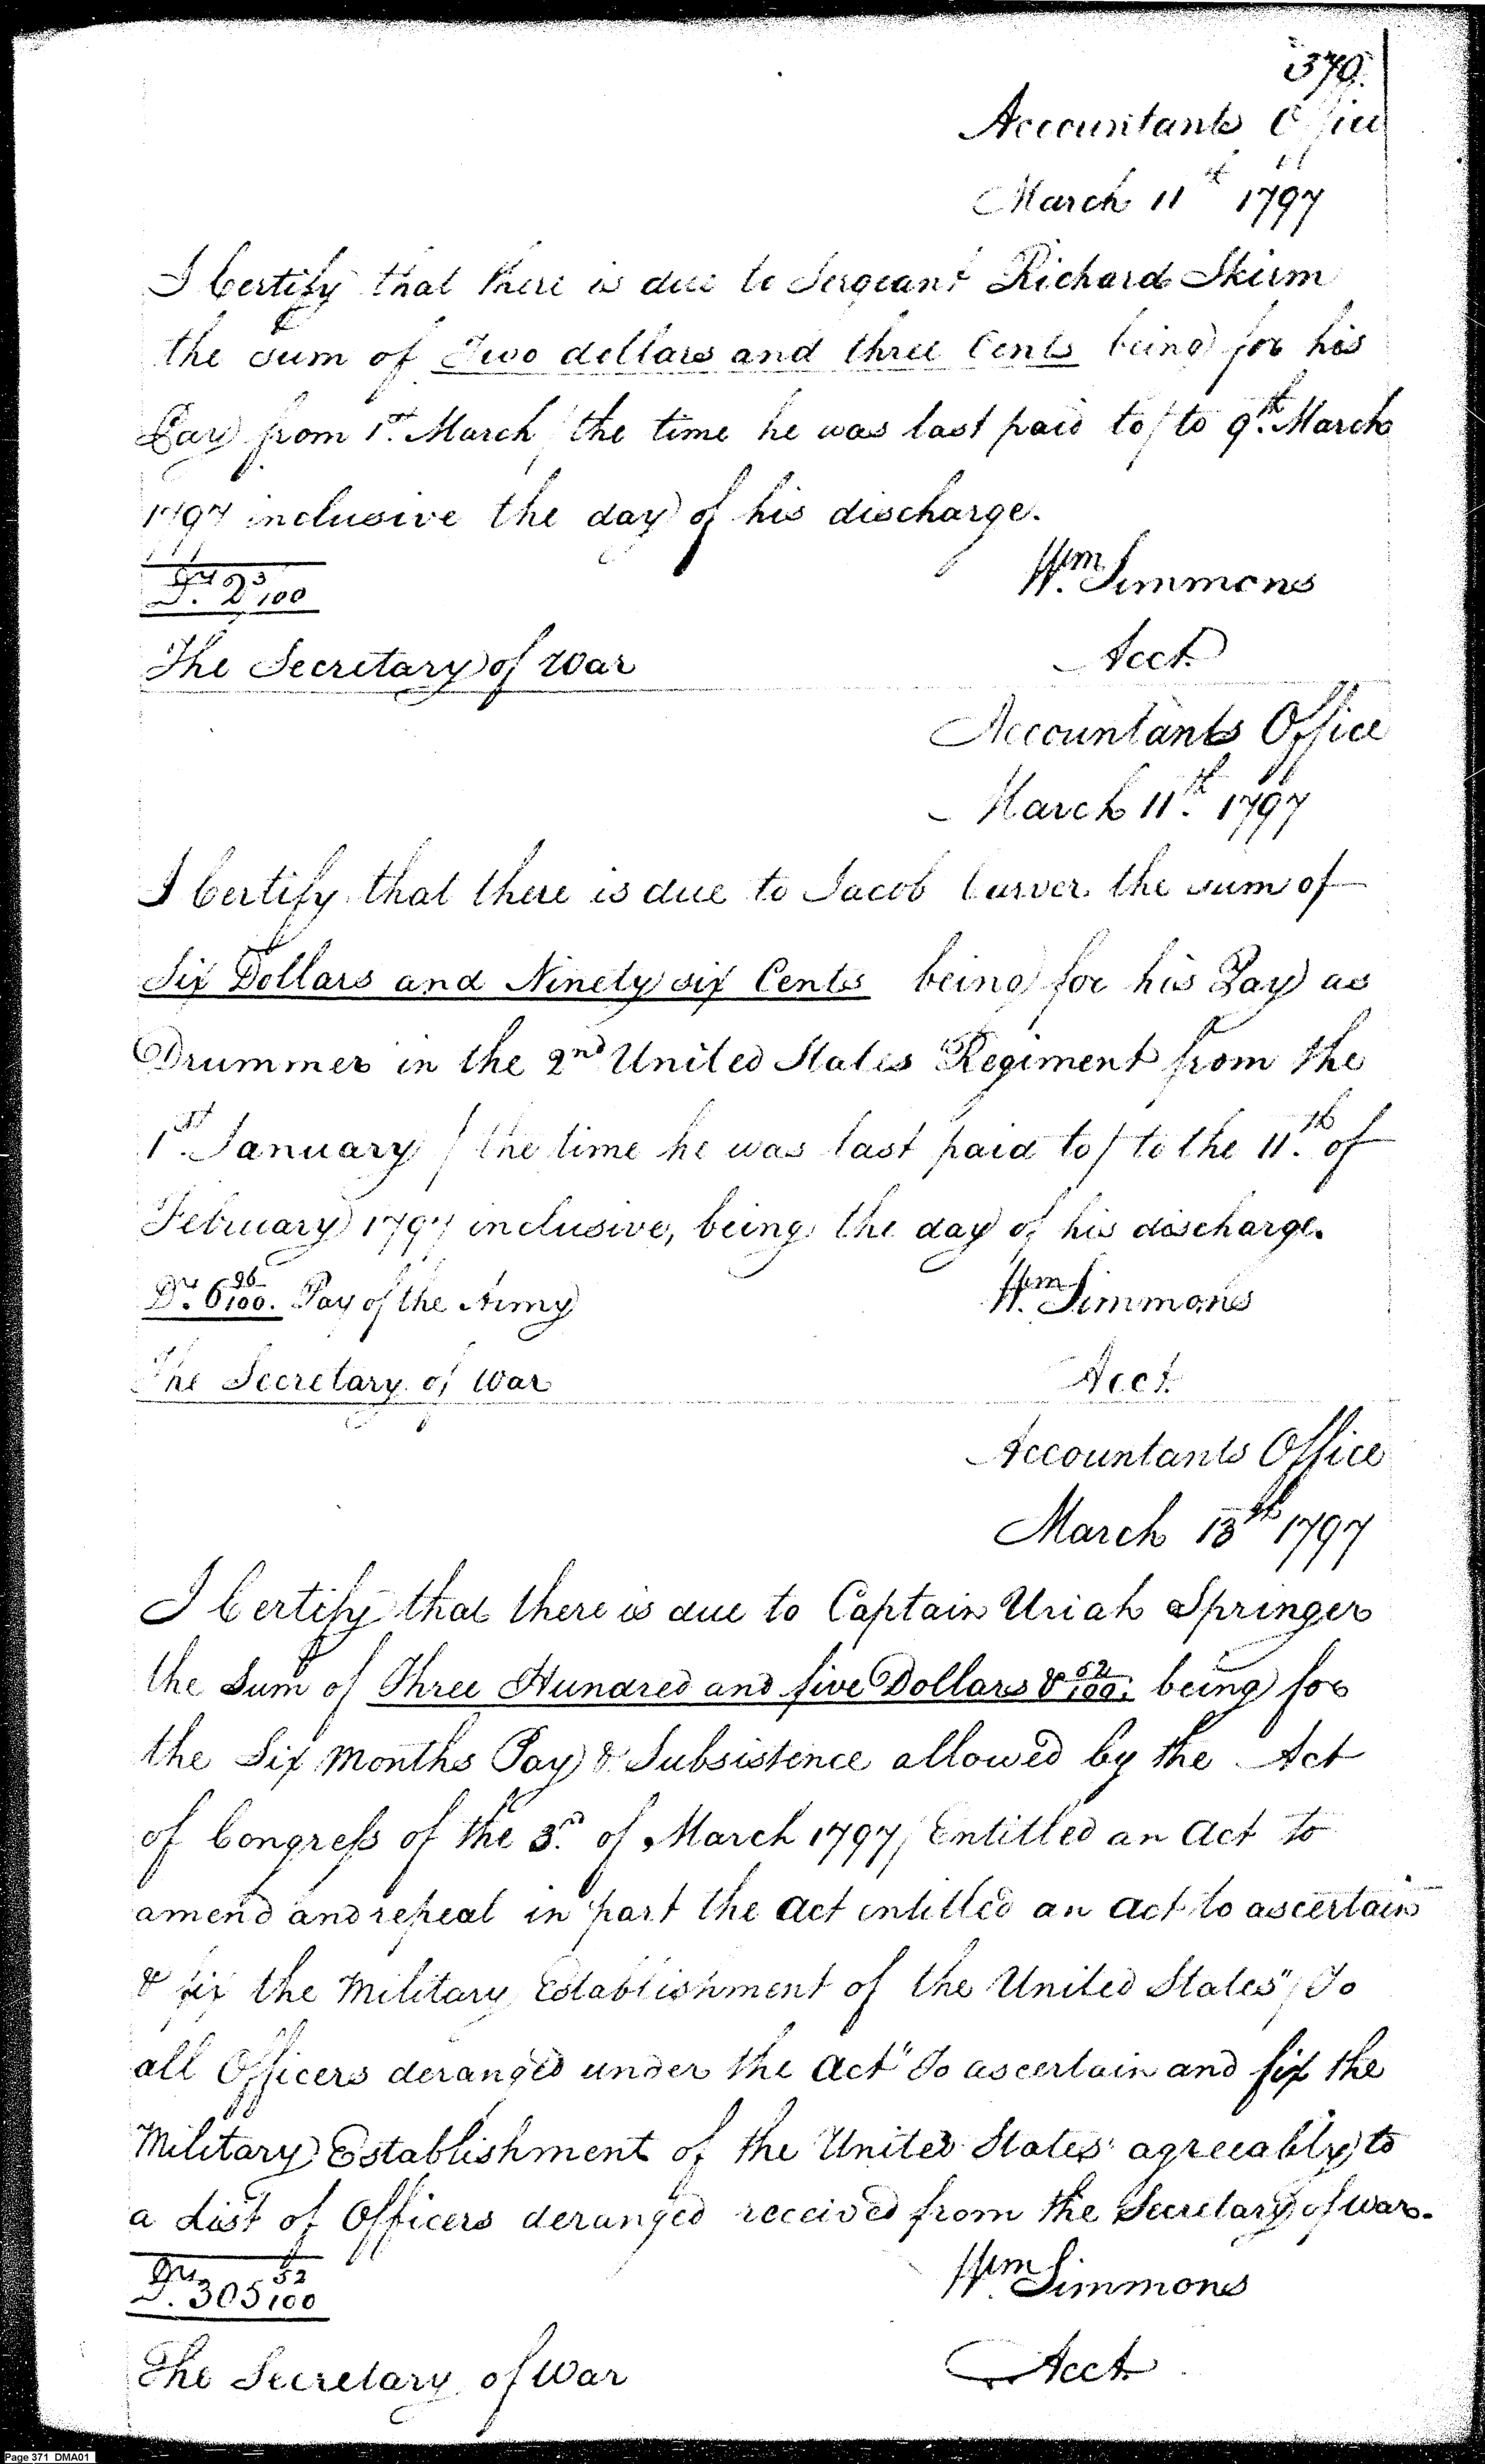 370.
Accountants Office
March 11th 1797
I Certify that there is due to Sergeant Richard Skirm
the sum of Two dollars and three Cents being for his
Pay from 1st. March / the time he was last paid to / to 9th. March
1797 inclusive the day of his discharge.
Drs. 2 3/100
Wm. Simmons
The Secretary of War
Acct.
Accountants Office
March 11th. 1797
I Certify that there is due to Jacob Carver the sum of
Six Dollars and Ninety six Cents being for his Pay as
Drummer in the 2nd United States Regiment from the
1st. January / the time he was last paid to / to the 11th. of
February 1797 inclusive, being the day of his discharge.
Drs. 6 96/100. Pay of the Army
Wm. Simmons
The Secretary of War
Acct.
Accountants Office
March 13th 1797
I Certify that there is due to Captain Uriah Springer
the Sum of Three Hundred and five Dollars & 52/100. being for
the Six Months Pay & Subsistence allowed by the Act
of Congress of the 3d. of March 1797 / Entitled an Act to
amend and repeal in part the Act entitled an Act to ascertain
& fix the Military Establishment of the United States" / To
all Officers deranged under the Act "To ascertain and fix the
Military Establishment of the United States" agreeably to
a List of Officers deranged received from the Secretary of War.
Drs. 305 52/100
Wm. Simmons
The Secretary of War
Acct.
Page 371 DMA01